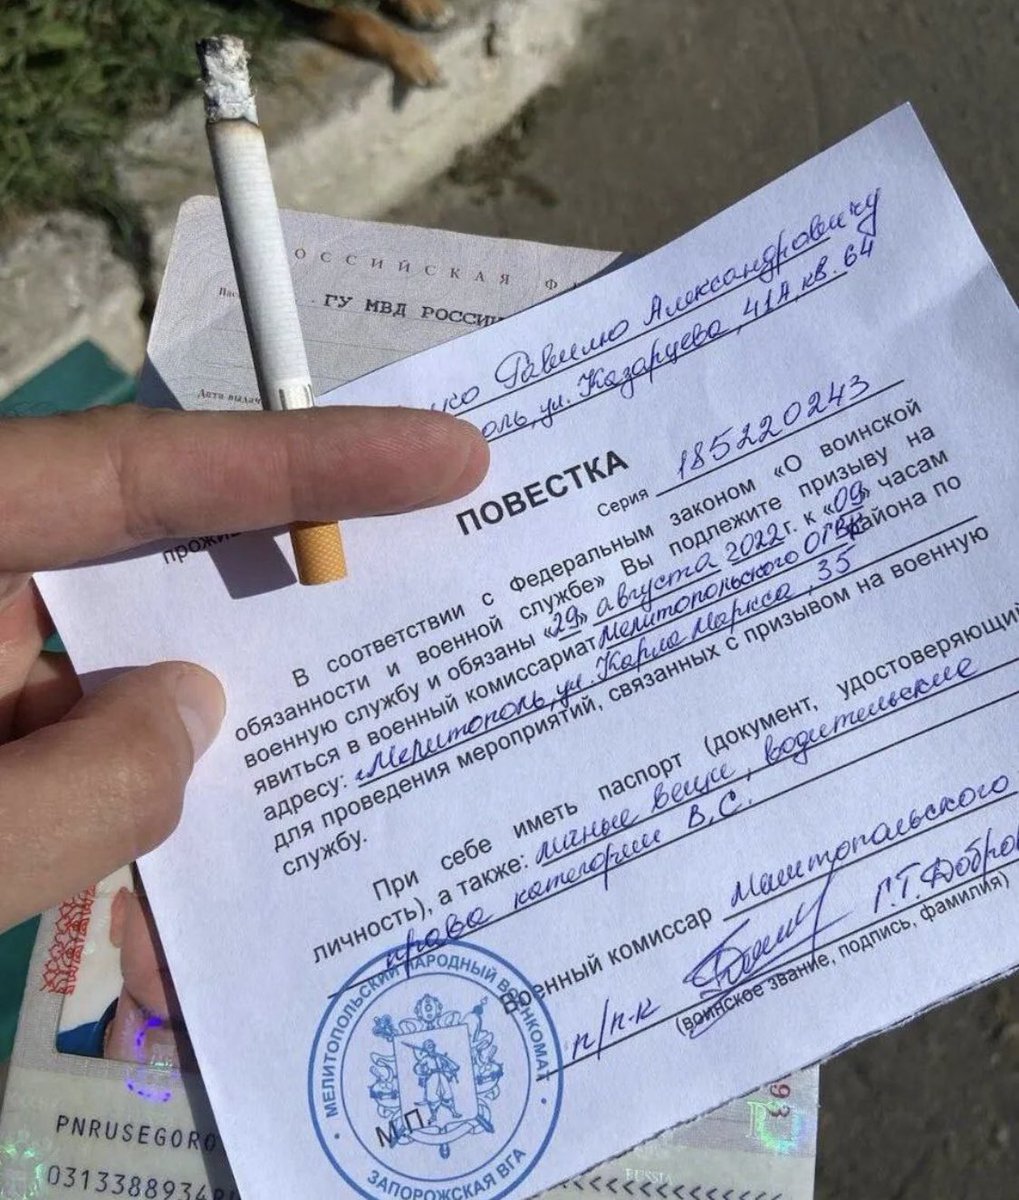 РОССИЙСКАЯ Ф
ГУ МВД РОССИИ
Дата выдач
ко Равилю Александровичу
оль, ул. Казарцева, 41А, кв. 64
прожив
ПОВЕСТКА
Серия 185220243
В соответствии с Федеральным законом «О воинской
обязанности и военной службе» Вы подлежите призыву на
военную службу и обязаны «29» августа 2022 г. к «09» часам
явиться в военный комиссариат Мелитопольского ОГВК района по
адресу: г. Мелитополь, ул. Карла Маркса, 35
для проведения мероприятий, связанных с призывом на военную
службу.
При себе иметь паспорт (документ, удостоверяющий
личность), а также: личные вещи, водительские
права категории В, С.
Военный комиссар Мелитопольского
п/п-к Г.Т. Добро
(воинское звание, подпись, фамилия)
М.П.
МЕЛИТОПОЛЬСКИЙ НАРОДНЫЙ ВОЕНКОМАТ
ЗАПОРОЖСКАЯ ВГА
PNRUSEGORO
0313388934R
RUSSIA
<<<<<<<<<